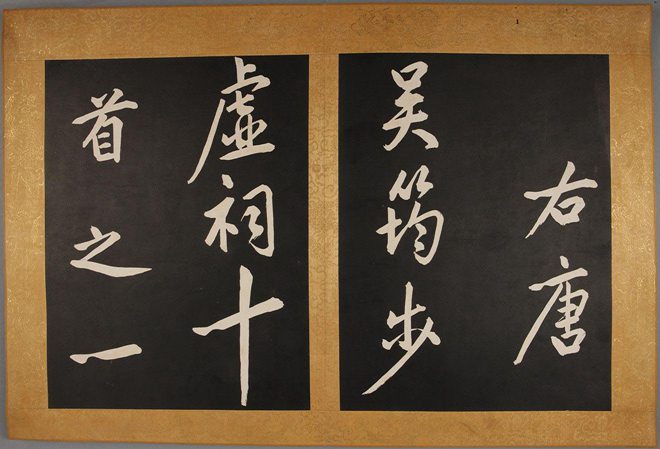 右唐
吴筠步
虛祠十
首之一